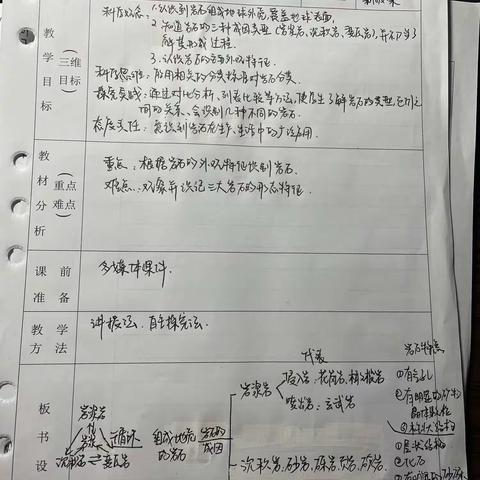 科学观念：1.认识到岩石组成地球外壳，覆盖地球表面。
2.知道岩石的三种成因类型（岩浆岩、沉积岩、变质岩），并初步了
解其形成过程。
3.认识岩石的主要外观特征。
科学思维：应用相关的分类标准对岩石分类。
探究实践：通过对比分析、列表比较等方法，使学生了解岩石的类型，它们之
间的关系，会识别几种不同的岩石。
态度责任：意识到岩石在生产、生活中的广泛应用。
教学目标
（三维目标）
教材分析
（重点难点）
重点：根据岩石的外观特征识别岩石。
难点：观察并识记三大岩石的形态特征。
课前准备
多媒体课件.
教学方法
讲授法、自主探究法.
板书设
岩浆岩
岩浆
沉积岩 ⇌ 变质岩
循环
组成地壳的岩石
岩石的成因
代表
岩石特点
岩浆岩
侵入岩：花岗岩、
喷出岩：玄武岩
沉积岩、砂岩、砾岩、页岩、
①有气孔
②有明显的矿物
晶体颗粒
①层状结构
②化石